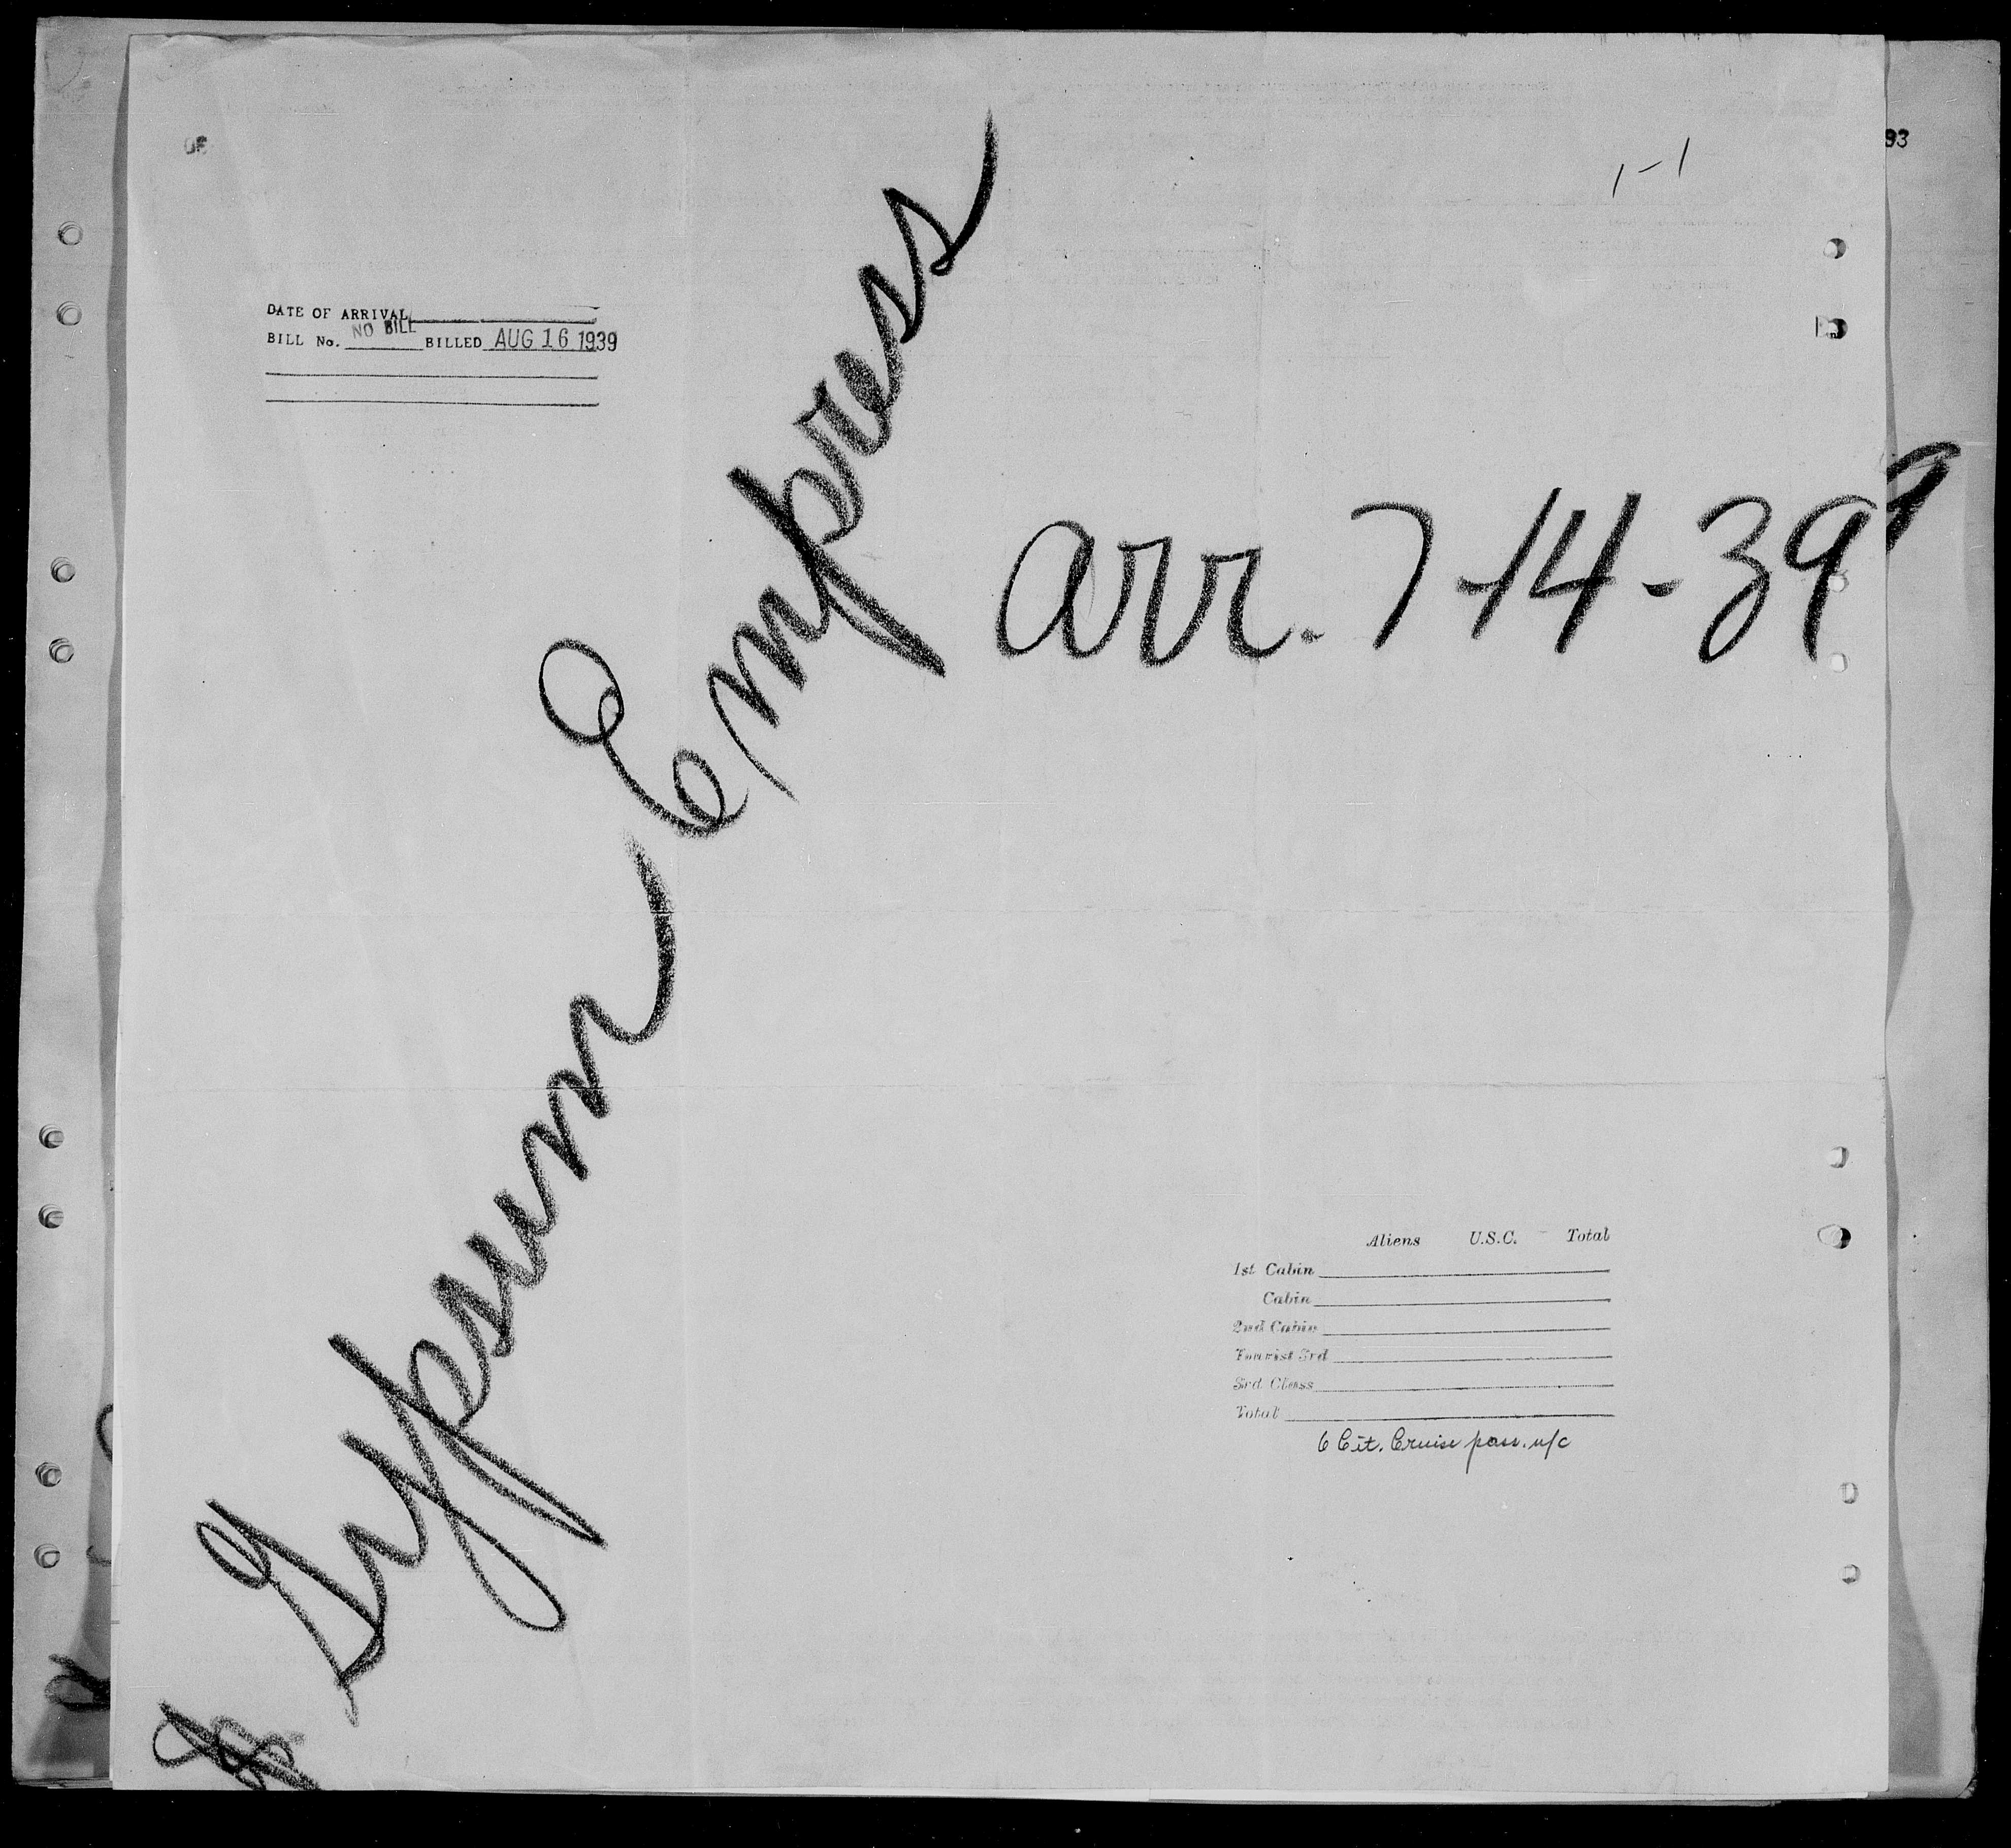 1-1
93
DATE OF ARRIVAL
BILL No. NO BILL BILLED AUG 16 1939
Gypsum Empress
arr. 7-14-39
9
Aliens U.S.C. Total
1st Cabin
Cabin
2nd Cabin
Tourist 3rd
3rd Class
Total
6 Cit. Cruise pass. n/c